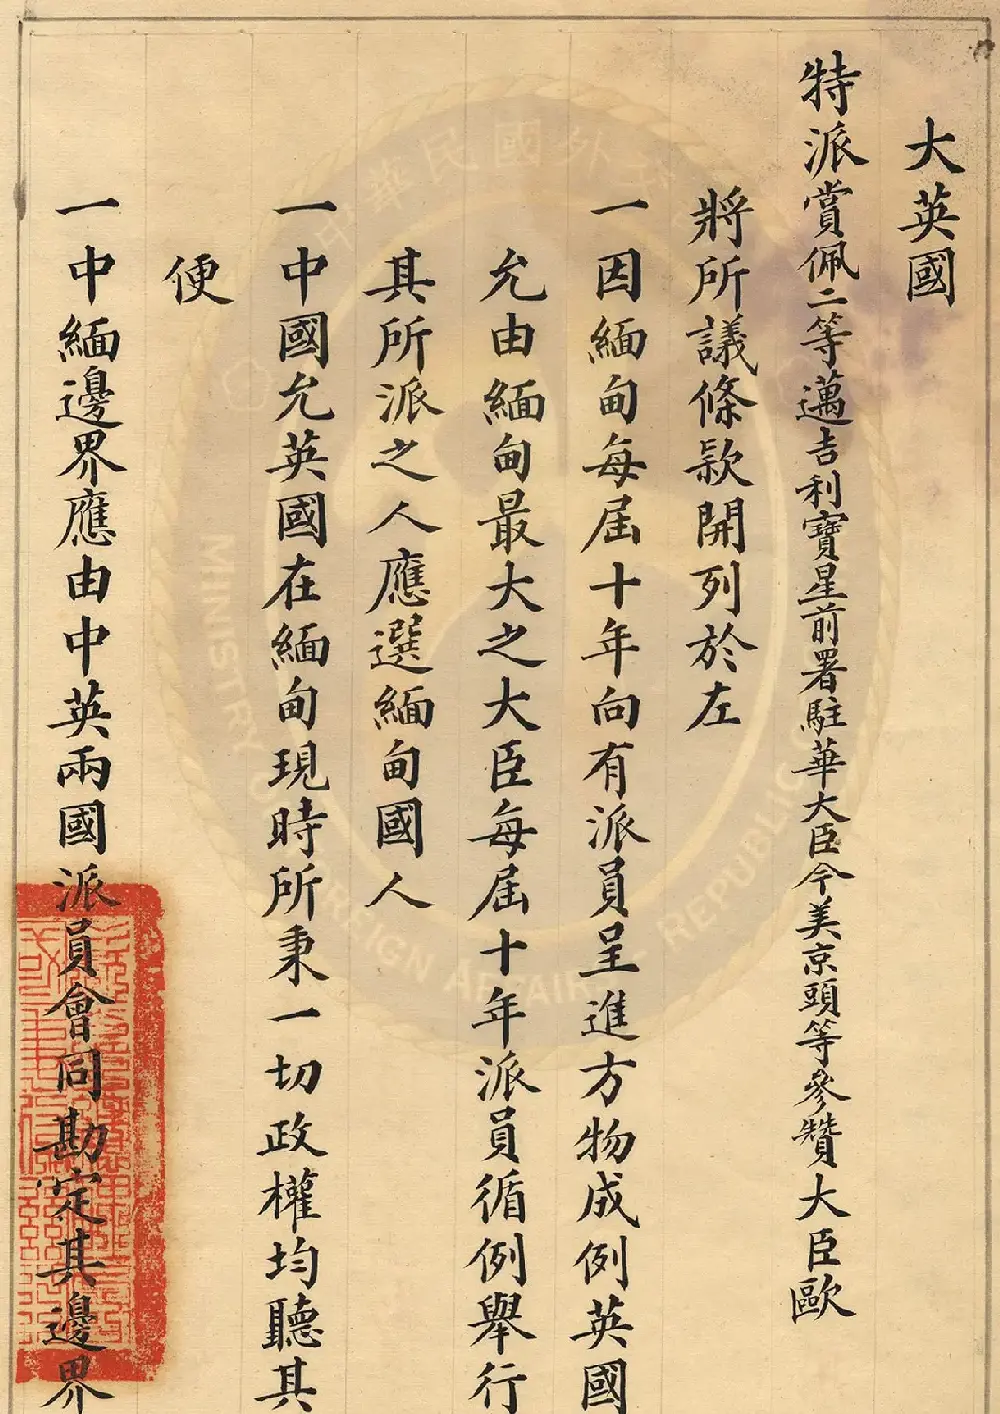 大英國
特派賞佩二等邁吉利寶星前署駐華大臣今美京頭等參贊大臣歐
將所議條款開列於左
一因緬甸每屆十年向有派員呈進方物成例英國
允由緬甸最大之大臣每屆十年派員循例舉行
其所派之人應選緬甸國人
一中國允英國在緬甸現時所秉一切政權均聽其
便
一中緬邊界應由中英兩國派員會同勘定其邊界
中華民國外交
MINISTRY OF FOREIGN AFFAIRS REPUBLIC O